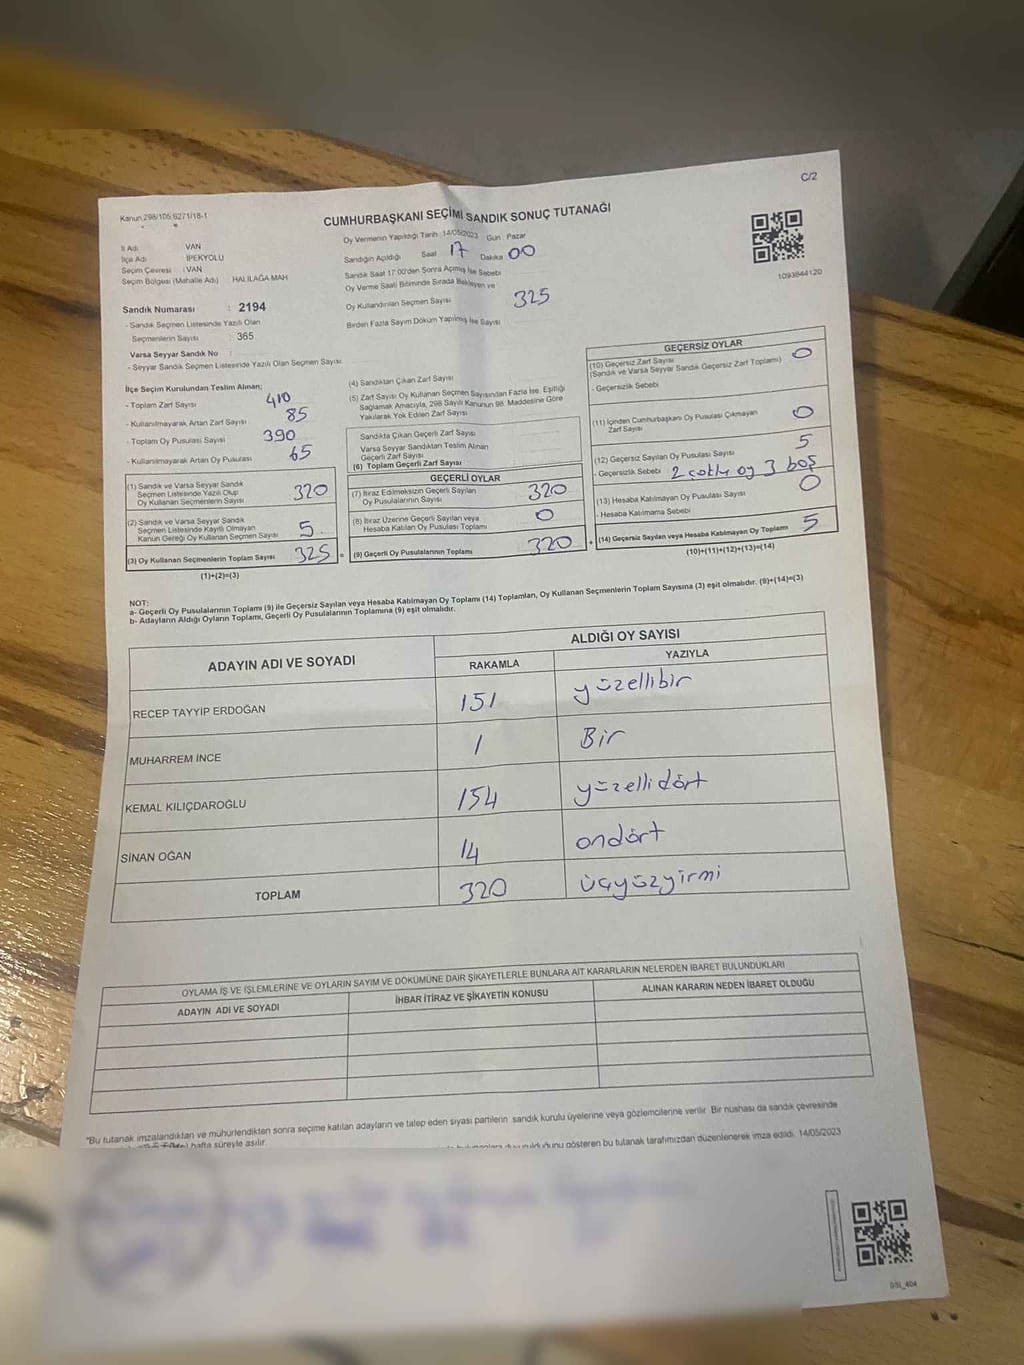 C/2
Kanun 298/105 6271/18-1
CUMHURBAŞKANI SEÇİMİ SANDIK SONUÇ TUTANAĞI
1093844120
İl Adı : VAN
İlçe Adı : İPEKYOLU
Seçim Çevresi : VAN
Seçim Bölgesi (Mahalle Adı) : HALİLAĞA MAH
Sandık Numarası : 2194
- Sandık Seçmen Listesinde Yazılı Olan
Seçmenlerin Sayısı : 365
Varsa Seyyar Sandık No :
- Seyyar Sandık Seçmen Listesinde Yazılı Olan Seçmen Sayısı
Oy Vermenin Yapıldığı Tarih : 14/05/2023 Gün : Pazar
Sandığın Açıldığı Saat 17 Dakika 00
Sandık Saat 17:00'den Sonra Açmış İse Sebebi
Oy Verme Saati Bitiminde Sırada Bekleyen ve
Oy Kullandırılan Seçmen Sayısı 325
Birden Fazla Sayım Döküm Yapılmış İse Sayısı
İlçe Seçim Kurulundan Teslim Alınan;
- Toplam Zarf Sayısı 410
- Kullanılmayarak Artan Zarf Sayısı 85
- Toplam Oy Pusulası Sayısı 390
- Kullanılmayarak Artan Oy Pusulası 65
(1) Sandık ve Varsa Seyyar Sandık
Seçmen Listesinde Yazılı Olup
Oy Kullanan Seçmenlerin Sayısı 320
(2) Sandık ve Varsa Seyyar Sandık
Seçmen Listesinde Kayıtlı Olmayan
Kanun Gereği Oy Kullanan Seçmen Sayısı 5
(3) Oy Kullanan Seçmenlerin Toplam Sayısı 325 =
(1)+(2)=(3)
(4) Sandıktan Çıkan Zarf Sayısı
(5) Zarf Sayısı Oy Kullanan Seçmen Sayısından Fazla İse, Eşitliği
Sağlamak Amacıyla, 298 Sayılı Kanunun 98. Maddesine Göre
Yakılarak Yok Edilen Zarf Sayısı
Sandıkta Çıkan Geçerli Zarf Sayısı
Varsa Seyyar Sandıktan Teslim Alınan
Geçerli Zarf Sayısı
(6) Toplam Geçerli Zarf Sayısı
GEÇERLİ OYLAR
(7) İtiraz Edilmeksizin Geçerli Sayılan
Oy Pusulalarının Sayısı 320
(8) İtiraz Üzerine Geçerli Sayılan veya
Hesaba Katılan Oy Pusulası Toplamı 0
(9) Geçerli Oy Pusulalarının Toplamı 320 +
GEÇERSİZ OYLAR
(10) Geçersiz Zarf Sayısı 0
(Sandık ve Varsa Seyyar Sandık Geçersiz Zarf Toplamı)
- Geçersizlik Sebebi
(11) İçinden Cumhurbaşkanı Oy Pusulası Çıkmayan
Zarf Sayısı 0
(12) Geçersiz Sayılan Oy Pusulası Sayısı 5
- Geçersizlik Sebebi 2 çoklu oy 3 boş
(13) Hesaba Katılmayan Oy Pusulası Sayısı 0
- Hesaba Katılmama Sebebi
(14) Geçersiz Sayılan veya Hesaba Katılmayan Oy Toplamı 5
(10)+(11)+(12)+(13)=(14)
NOT:
a- Geçerli Oy Pusulalarının Toplamı (9) ile Geçersiz Sayılan veya Hesaba Katılmayan Oy Toplamı (14) Toplamları, Oy Kullanan Seçmenlerin Toplam Sayısına (3) eşit olmalıdır. (9)+(14)=(3)
b- Adayların Aldığı Oyların Toplamı, Geçerli Oy Pusulalarının Toplamına (9) eşit olmalıdır.
ADAYIN ADI VE SOYADI
ALDIĞI OY SAYISI
RAKAMLA YAZIYLA
RECEP TAYYİP ERDOĞAN 151 yüzellibir
MUHARREM İNCE 1 Bir
KEMAL KILIÇDAROĞLU 154 yüzellidört
SİNAN OĞAN 14 ondört
TOPLAM 320 üçyüzyirmi
OYLAMA İŞ VE İŞLEMLERİNE VE OYLARIN SAYIM VE DÖKÜMÜNE DAİR ŞİKAYETLERLE BUNLARA AİT KARARLARIN NELERDEN İBARET BULUNDUKLARI
ADAYIN ADI VE SOYADI İHBAR İTİRAZ VE ŞİKAYETİN KONUSU ALINAN KARARIN NEDEN İBARET OLDUĞU
*Bu tutanak imzalandıktan ve mühürlendikten sonra seçime katılan adayların ve talep eden siyasi partilerin sandık kurulu üyelerine veya gözlemcilerine verilir. Bir nüshası da sandık çevresinde
hafta süreyle asılır.
gösteren bu tutanak tarafımızdan düzenlenerek imza edildi. 14/05/2023